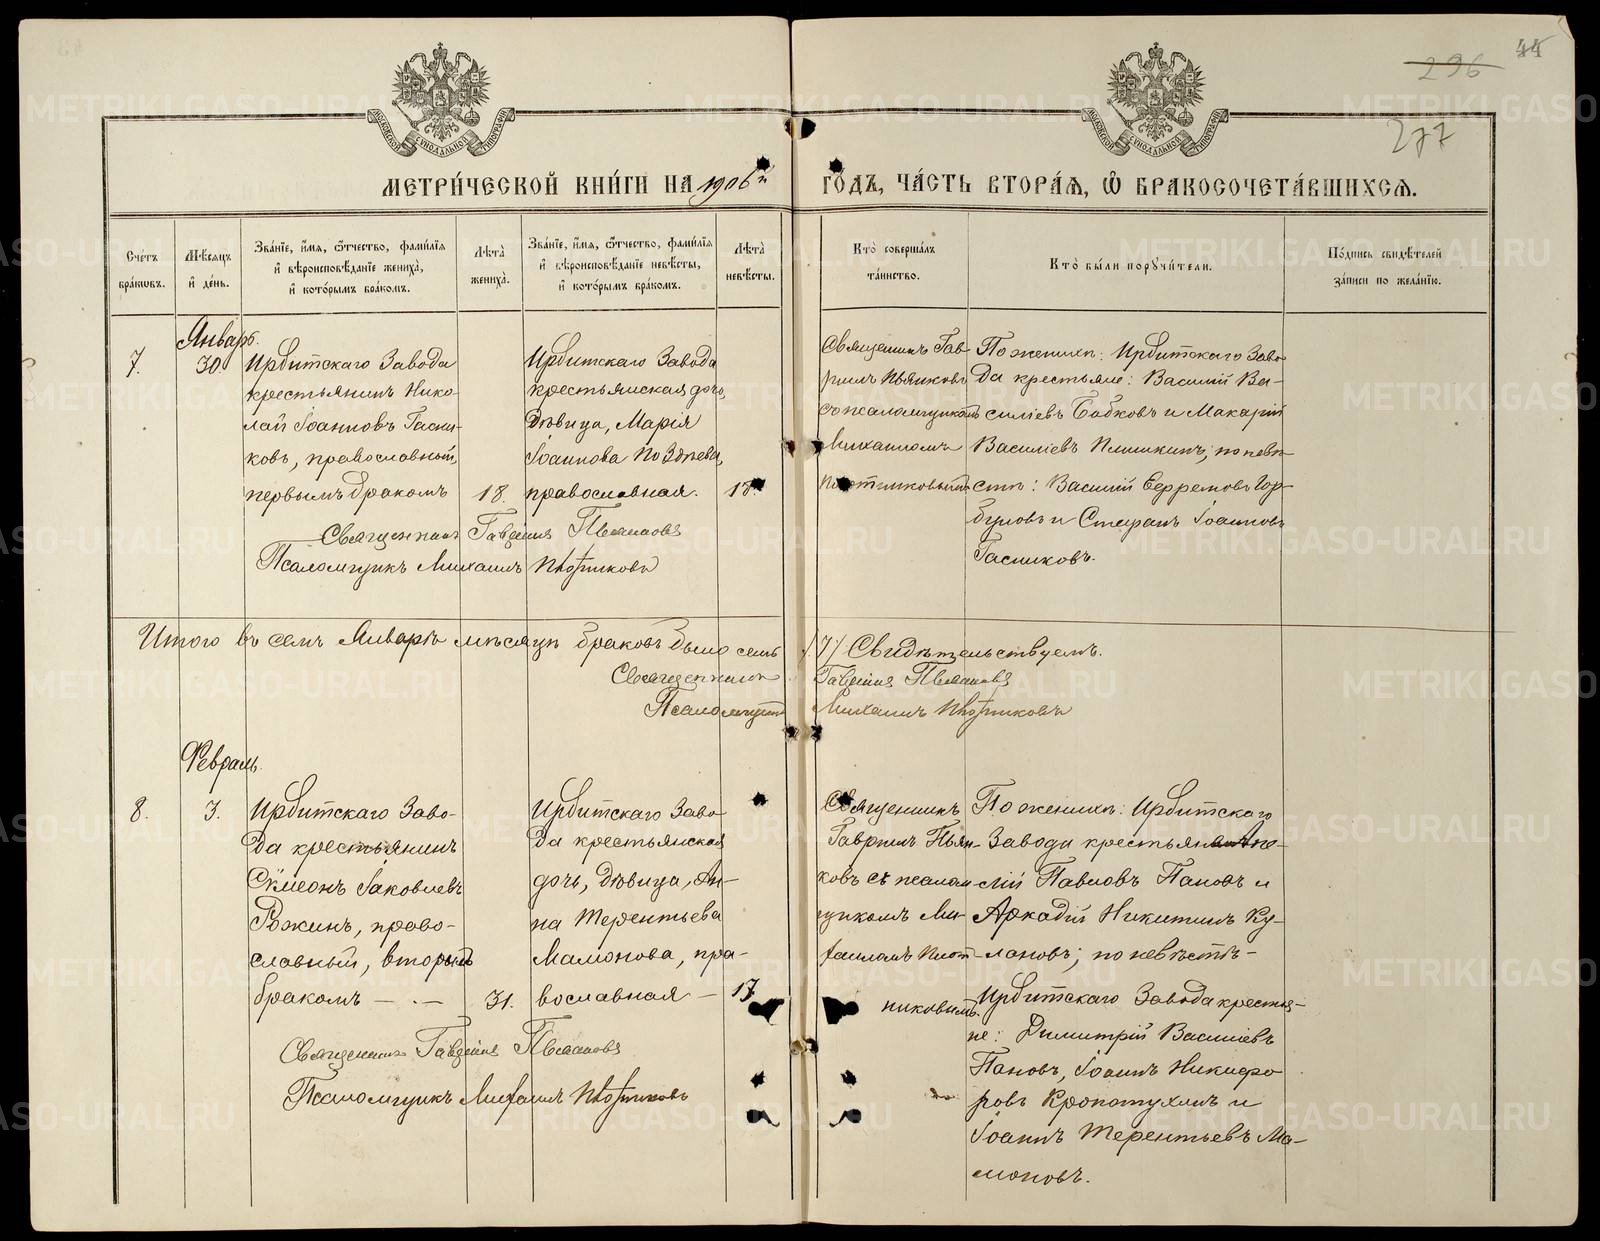 44
296
277
МЕТРИ́ЧЕСКОЙ КНИ́ГИ НА 1906й ГО́ДЪ, ЧА́СТЬ ВТОРА́Я, Ѿ БРАКОСОЧЕТА́ВШИХСЯ.
Сче́тъ бра́ковъ.
Мѣ́сяцъ и҆ де́нь.
Зва́нїе, и҆́мя, ѻ҆́тчество, фами́лїя и҆ вѣроисповѣ́данїе жениха̀, и҆ кото́рымъ бра́комъ.
Лѣ́та жениха̀.
Зва́нїе, и҆́мя, ѻ҆́тчество, фами́лїя и҆ вѣроисповѣ́данїе невѣ́сты, и҆ кото́рымъ бра́комъ.
Лѣ́та невѣ́сты.
Кто̀ соверша́лъ та́инство.
Кто̀ бы́ли порꙋчи́тели.
По́дпись свидѣ́телей за́писи по жела́нїю.
Январь.
7.
30
Ирбитскаго Завода
крестьянинъ Нико-
лай Іоанновъ Гасни-
ковъ, православный,
первымъ бракомъ
18.
Ирбитскаго Завода
крестьянская дочь,
Дѣвица, Марія
Іоаннова Поздѣева,
православная.
17.
Священникъ Гав-
рiилъ Пьянковъ
со псаломщикомъ
Михаиломъ
Плотниковымъ
По женихѣ: Ирбитскаго Заво-
да крестьяне: Василій Ва-
силіевъ Бабковъ и Макарій
Василіевъ Плишкинъ; по невѣ-
стѣ: Василій Ефремовъ Гор-
буновъ и Стефанъ Іоанновъ
Гасниковъ.
Священникъ Гавріилъ Пьянковъ
Псаломщикъ Михаилъ Плотниковъ
Итого въ семъ Январѣ мѣсяцѣ браковъ было семь (7) Свидѣтельствуемъ.
Священникъ Гавріилъ Пьянковъ
Псаломщикъ Михаилъ Плотниковъ
Февраль.
8.
3.
Ирбитскаго Заво-
да крестьянинъ
Симеонъ Іаковлевъ
Рожинъ, право-
славный, вторымъ
бракомъ — . —
31.
Ирбитскаго Заво-
да крестьянская
дочь, Дѣвица, Ан-
на Терентьева
Мамонова, пра-
вославная —
17
Священникъ
Гавріилъ Пьян-
ковъ съ псалом-
щикомъ Ми-
хаиломъ Плот-
никовымъ.
По женихѣ: Ирбитскаго
Завода крестьяне
лій Павловъ Пановъ и
Аркадій Никитинъ Ку-
лановъ; по невѣстѣ -
Ирбитскаго Завода крестья-
не: Димитрій Василіевъ
Пановъ, Іоаннъ Никифо
ровъ Кропотухинъ и
Іоаннъ Терентьевъ Ма-
моновъ.
Священникъ Гавріилъ Пьянковъ
Псаломщикъ Михаилъ Плотниковъ